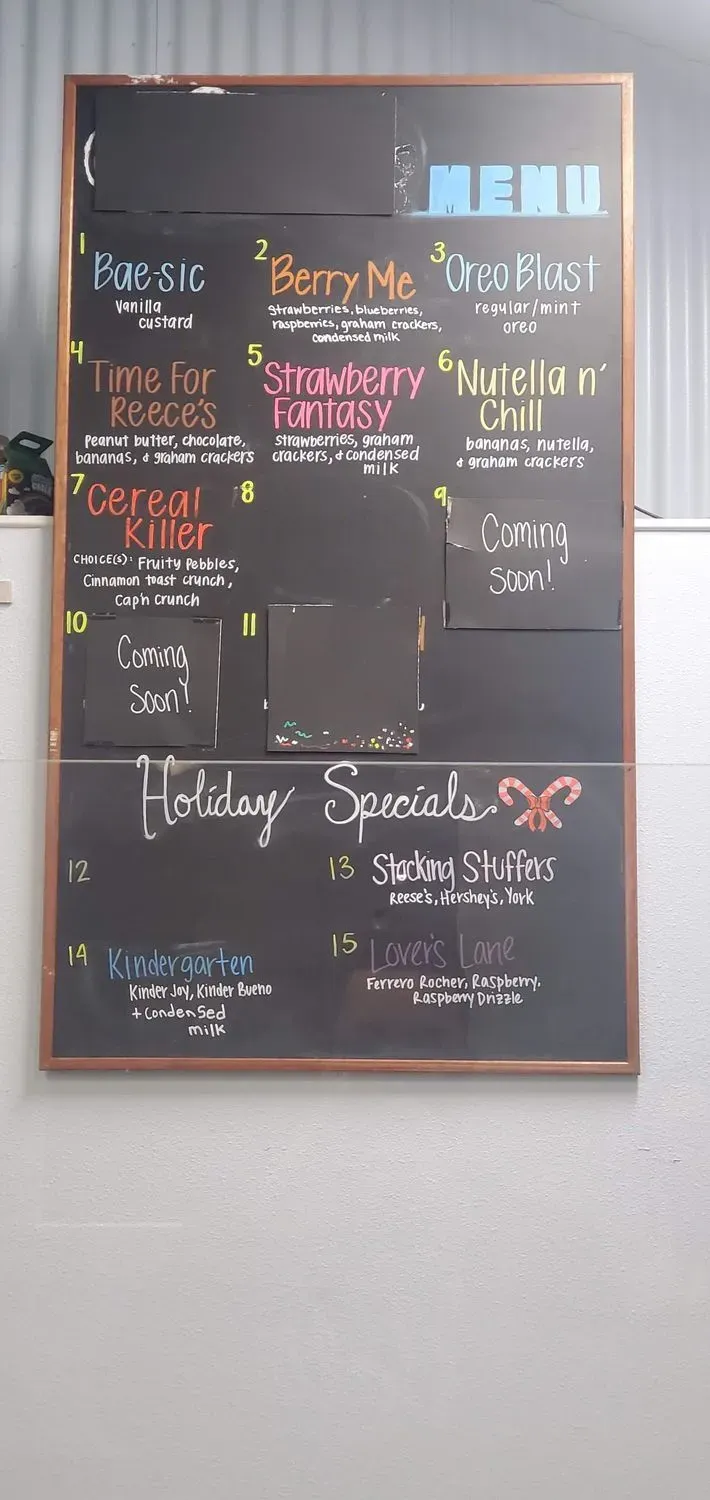 MENU
1
Bae-sic
Vanilla
custard
2
Berry Me
strawberries, blueberries,
raspberries, graham crackers,
condensed milk
3
Oreo Blast
regular/mint
oreo
4
Time For
Reece's
peanut butter, chocolate,
bananas, & graham crackers
5
Strawberry
Fantasy
strawberries, graham
crackers, & condensed
milk
6
Nutella n'
Chill
bananas, nutella,
& graham crackers
7
Cereal
Killer
CHOICE(S): Fruity Pebbles,
Cinnamon toast crunch,
Cap'n crunch
8
9
Coming
Soon!
10
Coming
Soon!
11
Holiday Specials
12
13
Stocking Stuffers
Reese's, Hershey's, York
14
Kindergarten
Kinder Joy, Kinder Bueno
+ Condensed
milk
15
Lover's Lane
Ferrero Rocher, Raspberry,
Raspberry Drizzle